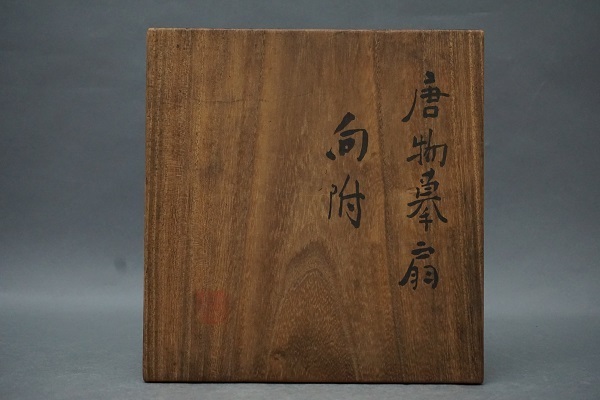 唐物摹扇
向附